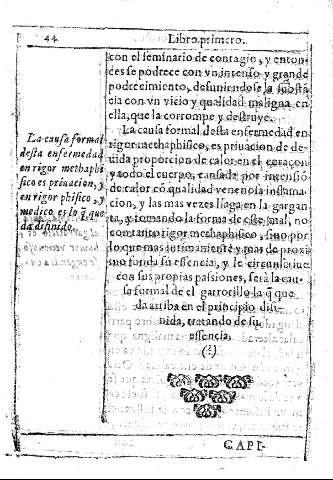 44 Libro primero.
con el seminario de contagio, y enton-
ces se podrece con vn intenso y grande
podrecimiento, desuniendose la substã
cia con vn vicio y qualidad maligna en
ella, que la corrompe y destruye.
La causa formal desta enfermedad en
rigor metaphisico, es priuacion de de-
uida proporcion de calor en el coraçon
y todo el cuerpo, causada por intensiõ
de calor cõ qualidad venenosa inflama-
cion, y las mas vezes llaga en la gargan
ta, y tomando la forma de este mal, no
con tanto rigor metaphisico, sino por
lo que mas intimamente y mas de proxi
mo funda su essencia, y le
con sus propias passiones, serà la cau-
sa formal de el garrotillo la q̃ que
da arriba en el principio difi-
nida, tratando de su
essencia.
(?)
La causa formal
desta enfermedad
en rigor methaphi
sico es priuacion, y
en rigor phisico, y
medico es lo q̃ que
da difinido.
CAPI-